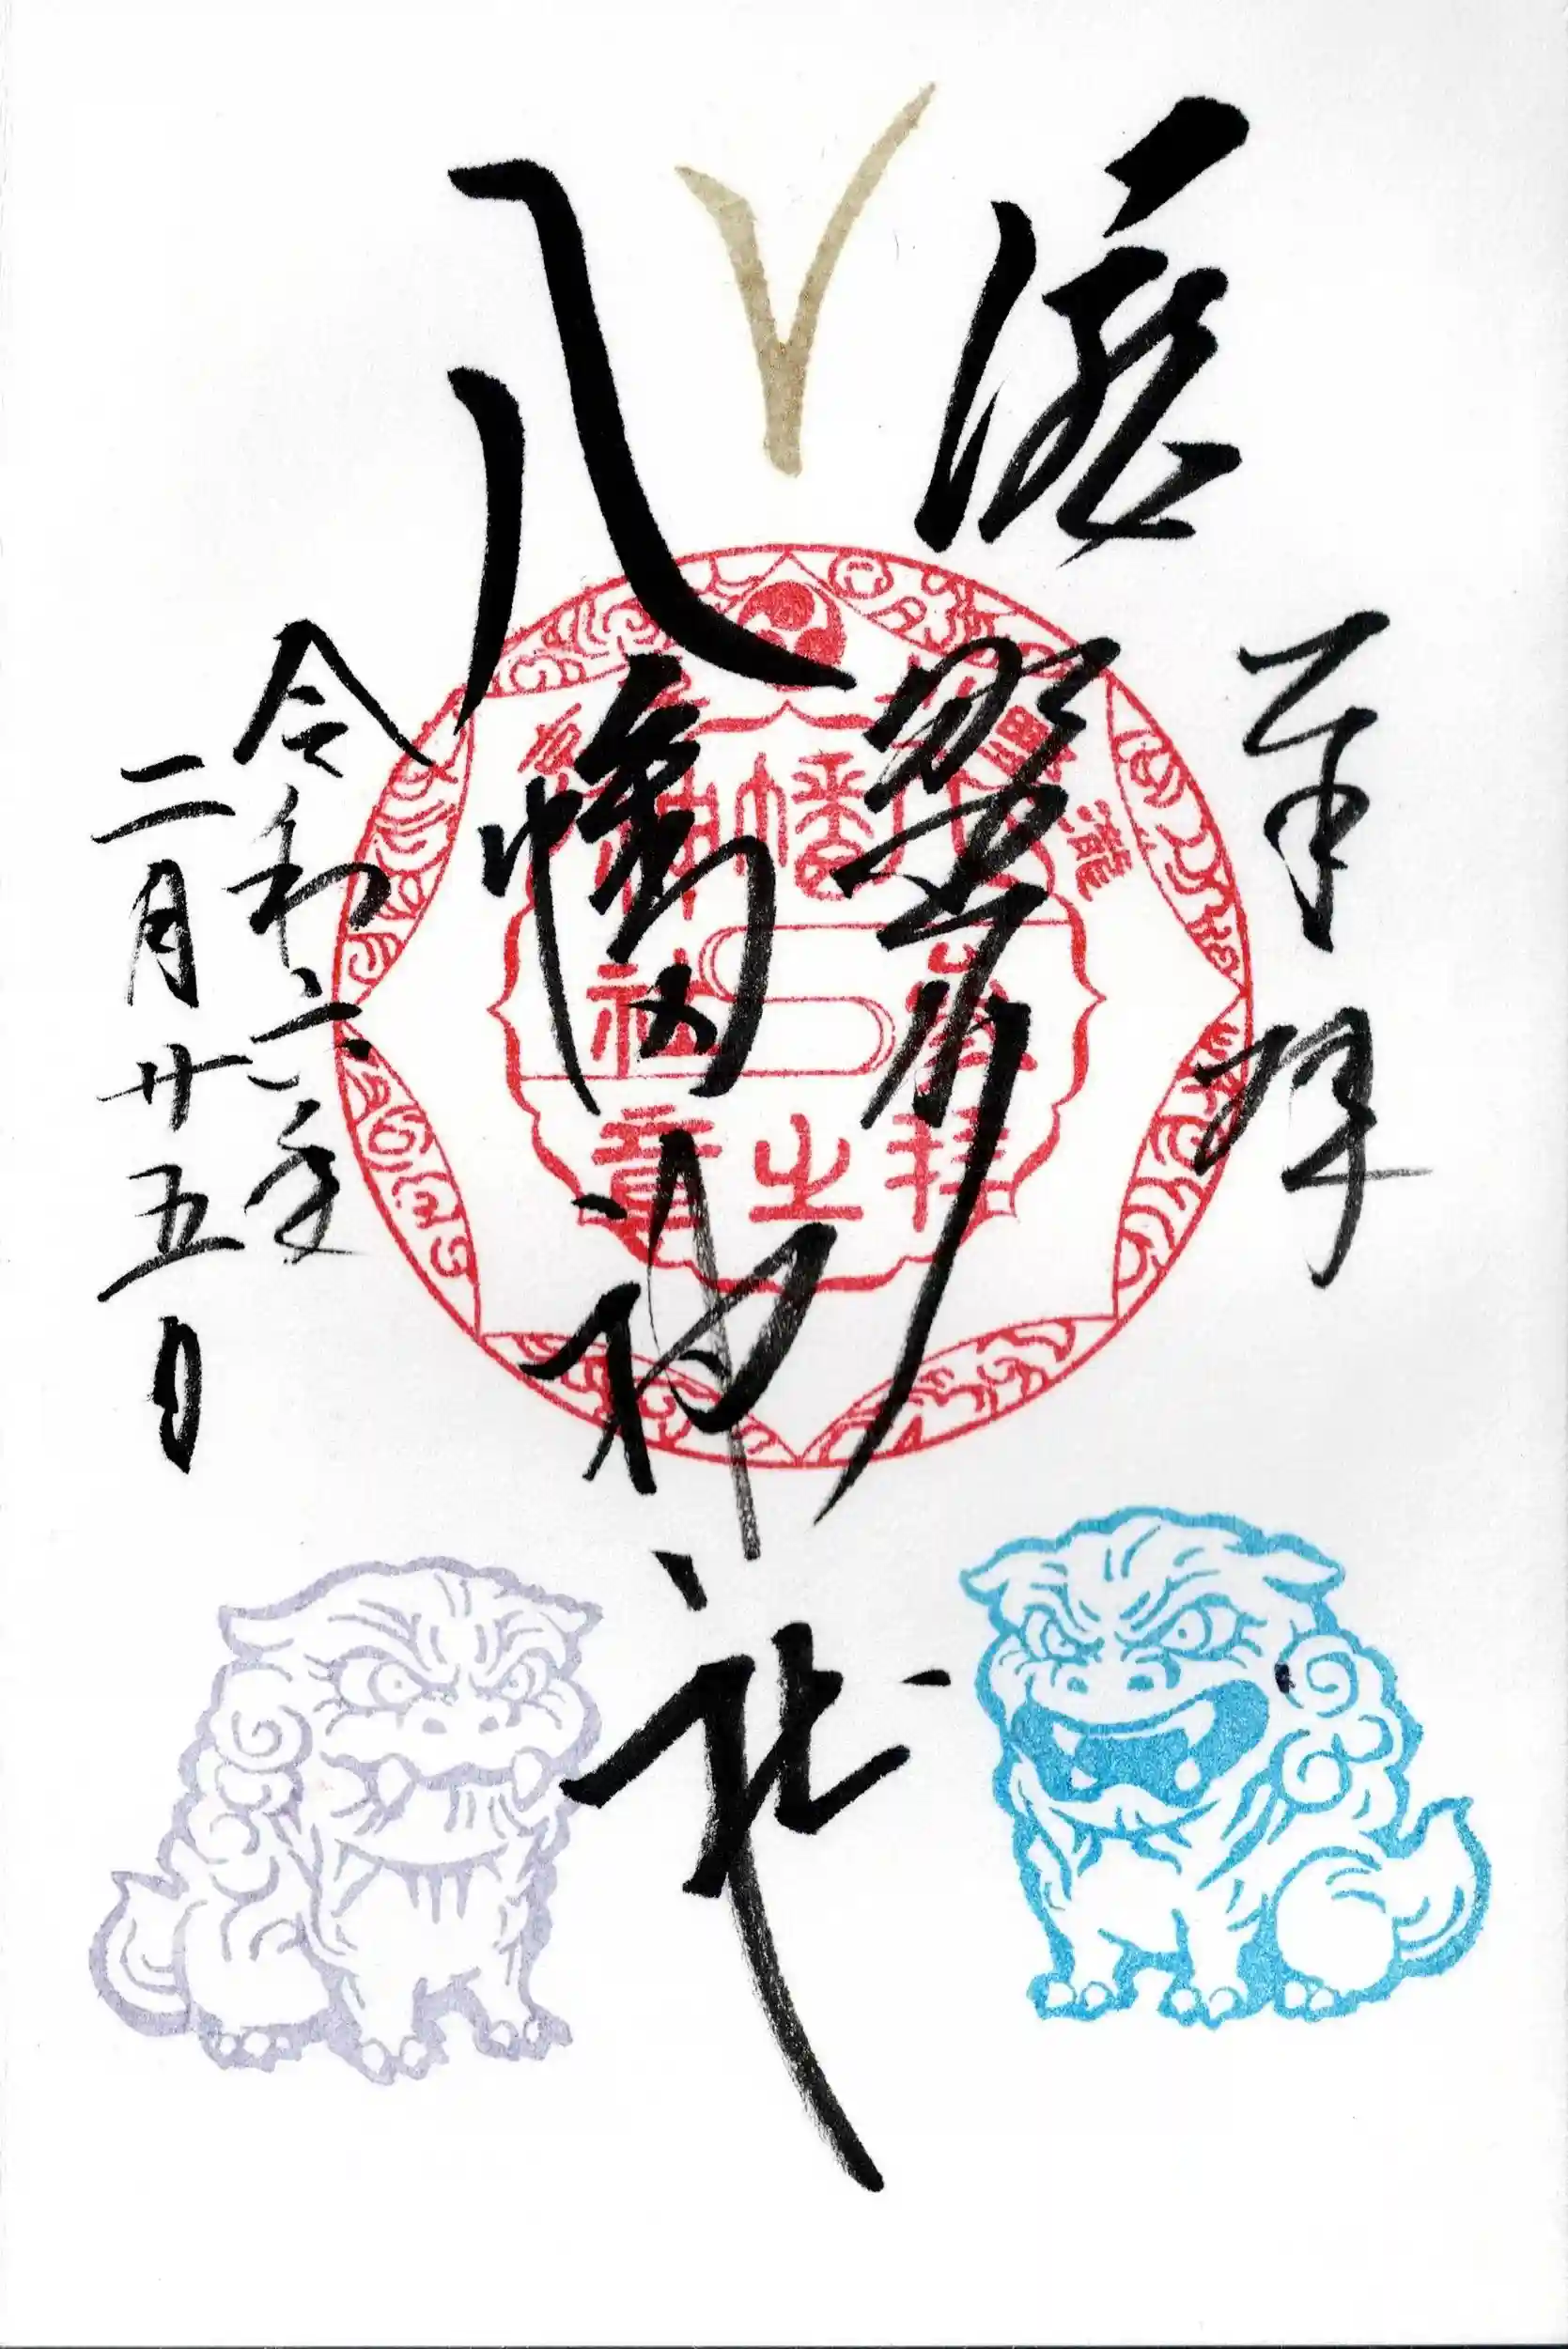 奉拝
滝野川
八幡神社
令和六年
二月廿五日
八幡神社
參拜之章